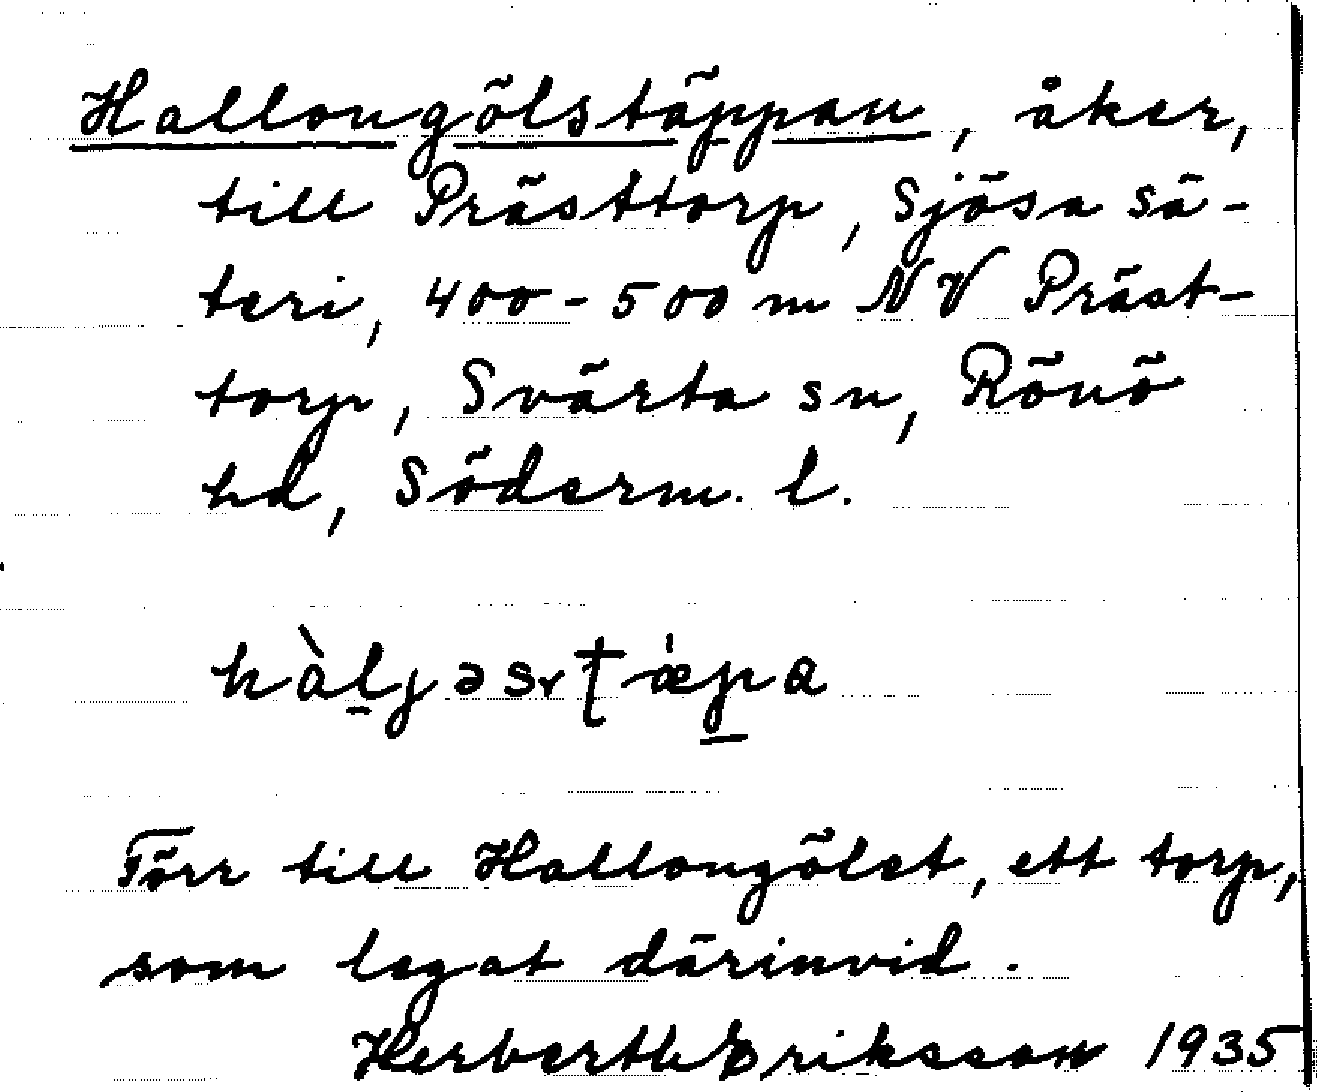 Hallongölstäppan, åker,
till Prästtorp, Sjösa sä-
teri, 400-500 m NV Präst-
torp, Svärta sn, Rönö
hd, Söderm. l.
hàḻjəsrtǽp̱a
Förr till Hallongölet, ett torp,
som legat därinvid.
Herbert Eriksson 1935